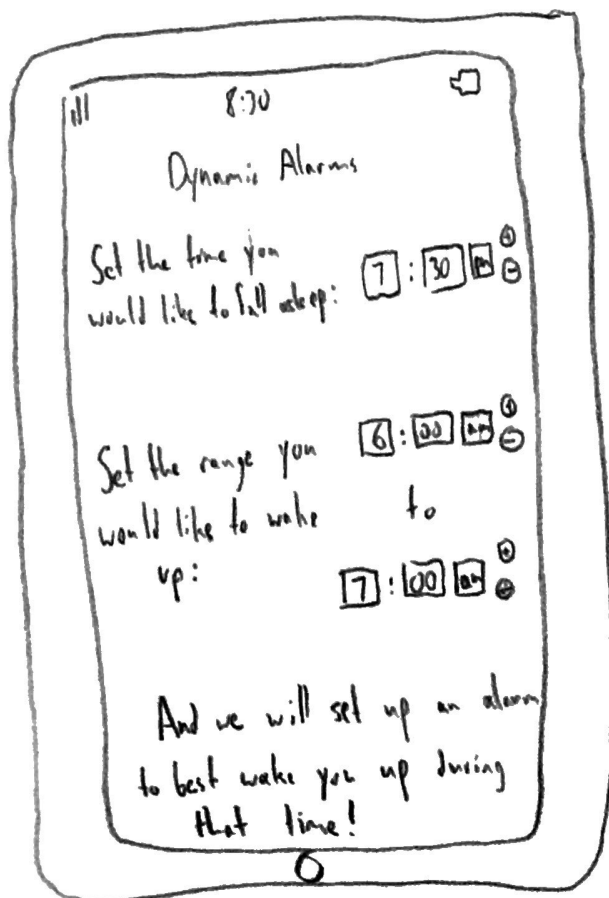 8:30
Dynamic Alarms
Set the time you
would like to fall asleep:
7 : 30 pm + -
Set the range you
would like to wake
up:
6 : 00 am + -
to
7 : 00 am + -
And we will set up an alarm
to best wake you up during
that time!